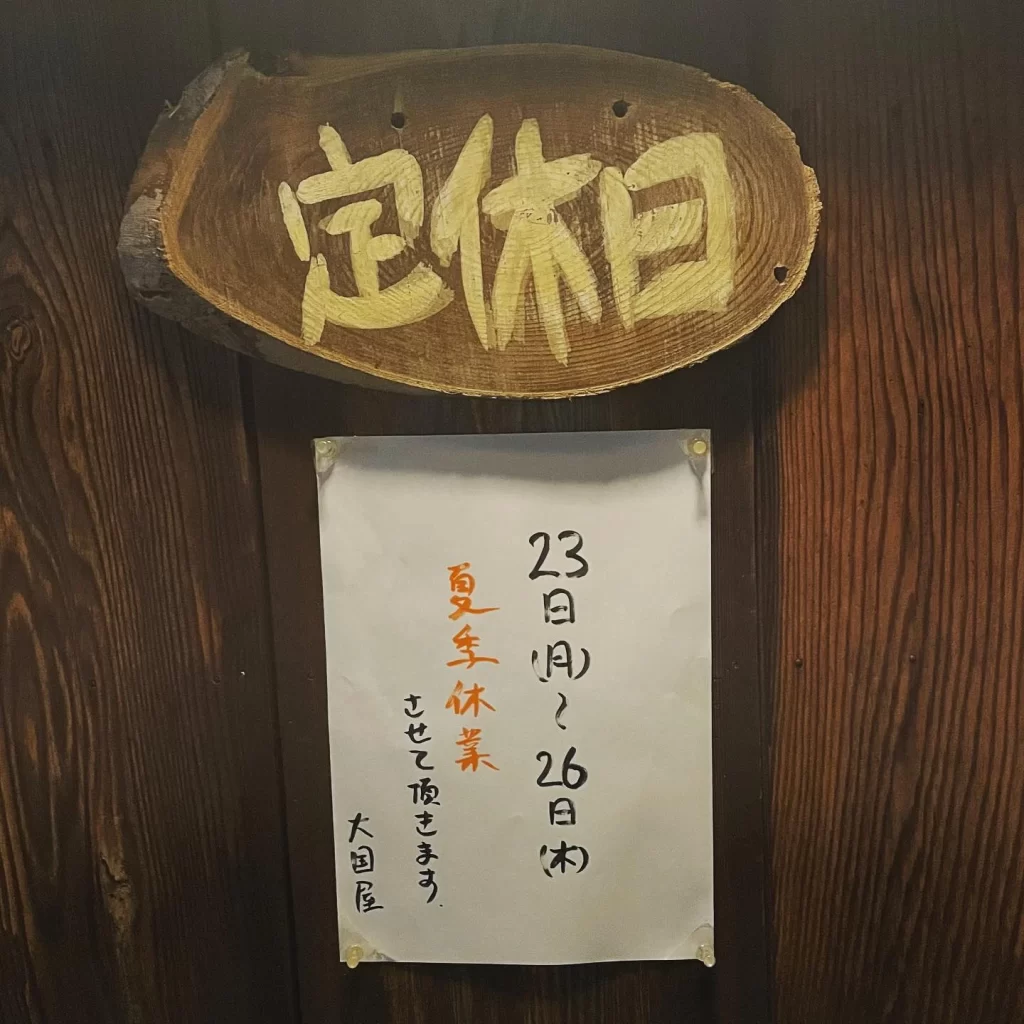 定休日
23日(月)〜26日(木)
夏季休業
させて頂きます.
大国屋